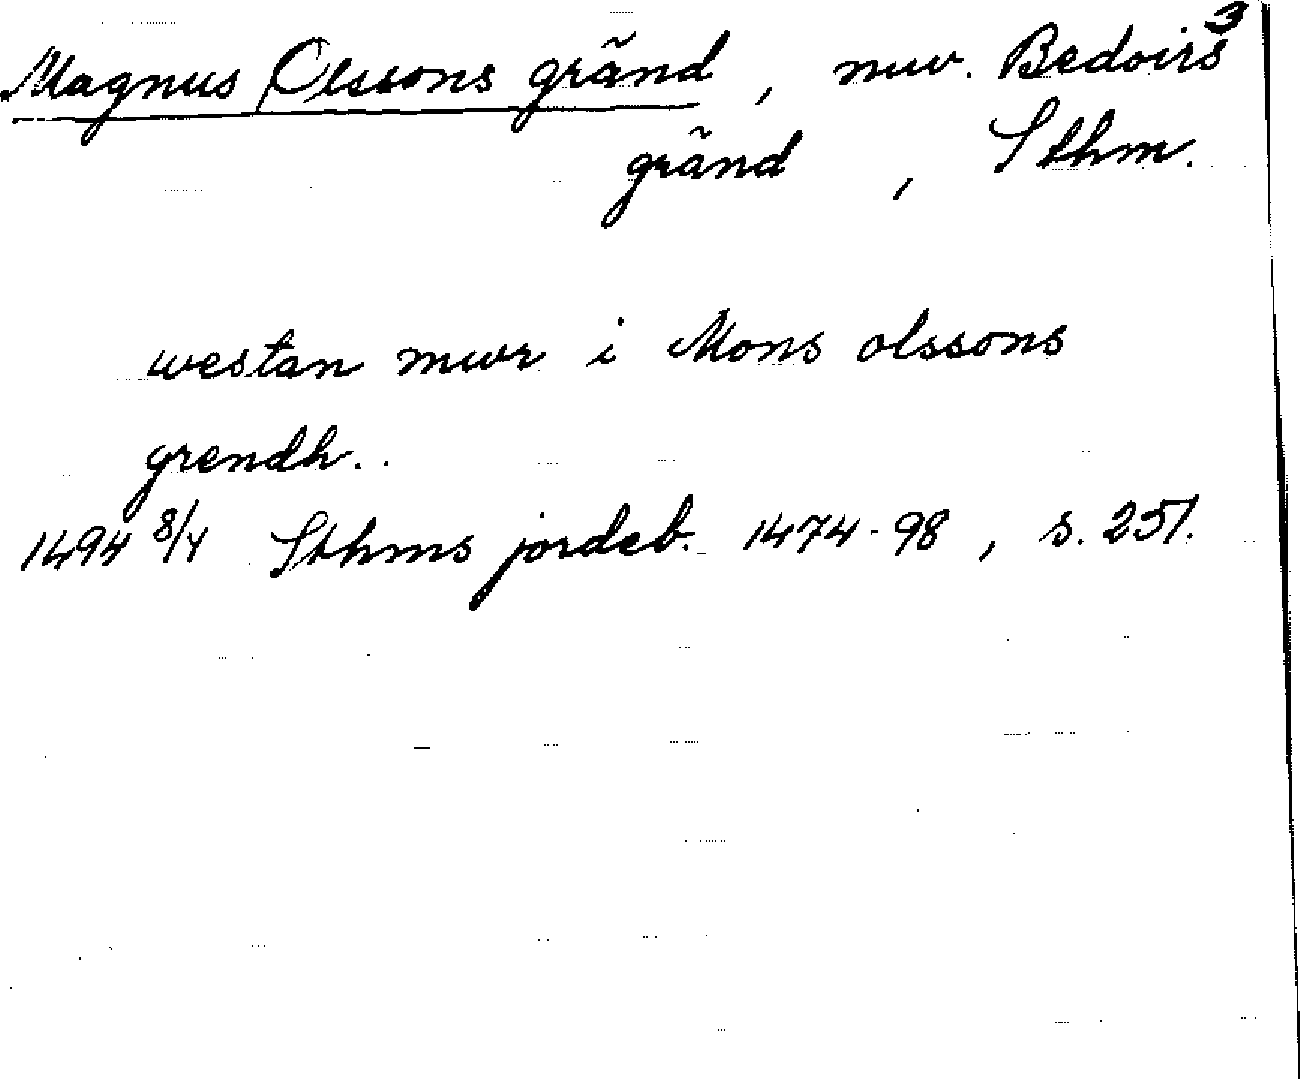 3
Magnus Olssons gränd, nuv. Bedoirs
gränd, Sthm.
westan mwr i Mons olssons
grendh..
1494 8/4 Sthms jordeb. 1474-98, s. 251.